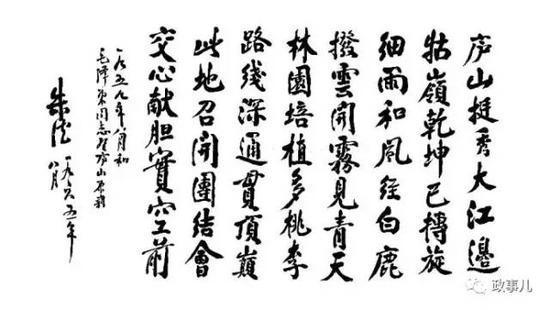 庐山挺秀大江邊
牯嶺乾坤已轉旋
细雨和风经白鹿
撥雲開霧見青天
林園培植多桃李
路线深通貫頂巔
此地召開團结會
交心献胆實空前
一九五九年八月和
毛泽东同志登庐山原韵
朱德 一九六五年
八月
政事儿